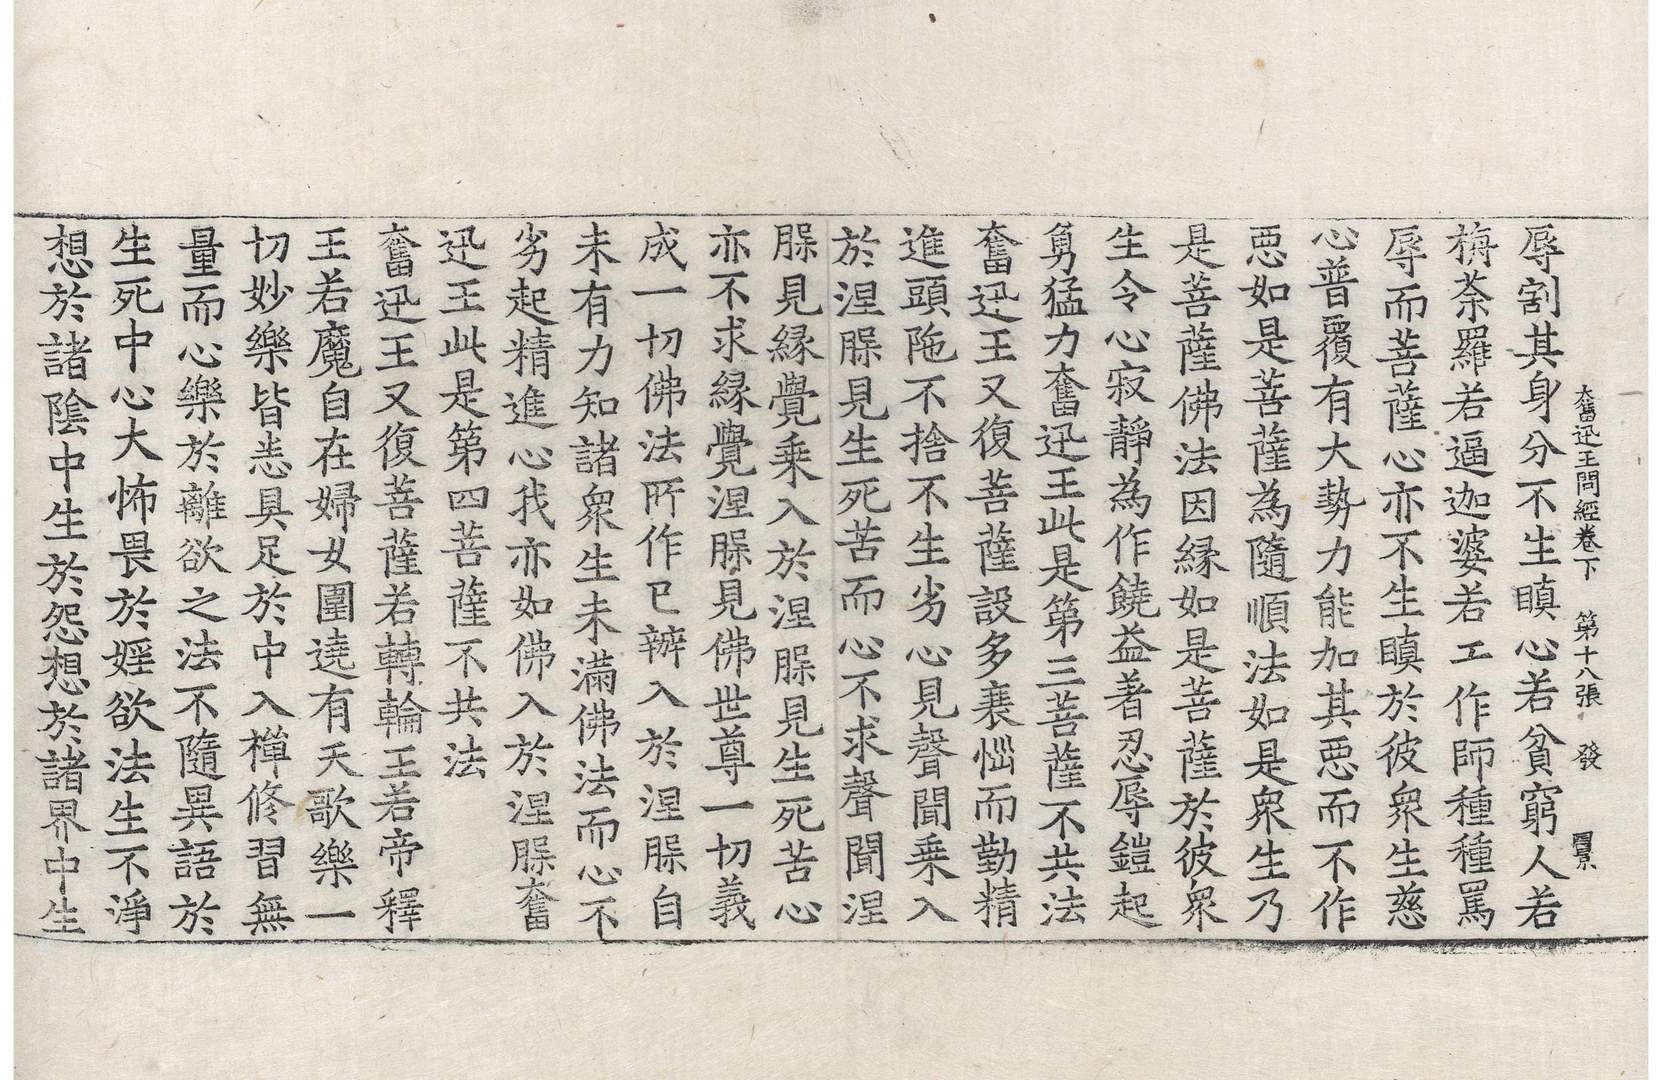 奮迅王問經卷下　第十八張　發
辱割其身分不生瞋心若貧窮人若
栴荼羅若逼迦婆若工作師種種罵
辱而菩薩心亦不生瞋於彼衆生慈
心普覆有大勢力能加其惡而不作
惡如是菩薩為隨順法如是衆生乃
是菩薩佛法因緣如是菩薩於彼衆
生令心寂靜為作饒益著忍辱鎧起
勇猛力奮迅王此是第三菩薩不共法
奮迅王又復菩薩設多衰惱而勤精
進頭陁不捨不生劣心見聲聞乗入
於涅槃見生死苦而心不求聲聞涅
槃見緣覺乗入於涅槃見生死苦心
亦不求緣覺涅槃見佛世尊一切義
成一切佛法所作已辦入於涅槃自
未有力知諸衆生未滿佛法而心不
劣起精進心我亦如佛入於涅槃奮
迅王此是第四菩薩不共法
奮迅王又復菩薩若轉輪王若帝釋
王若魔自在婦女圍遶有天歌樂一
切妙樂皆悉具足於中入禪修習無
量而心樂於離欲之法不隨異語於
生死中心大怖畏於婬欲法生不淨
想於諸陰中生於怨想於諸界中生